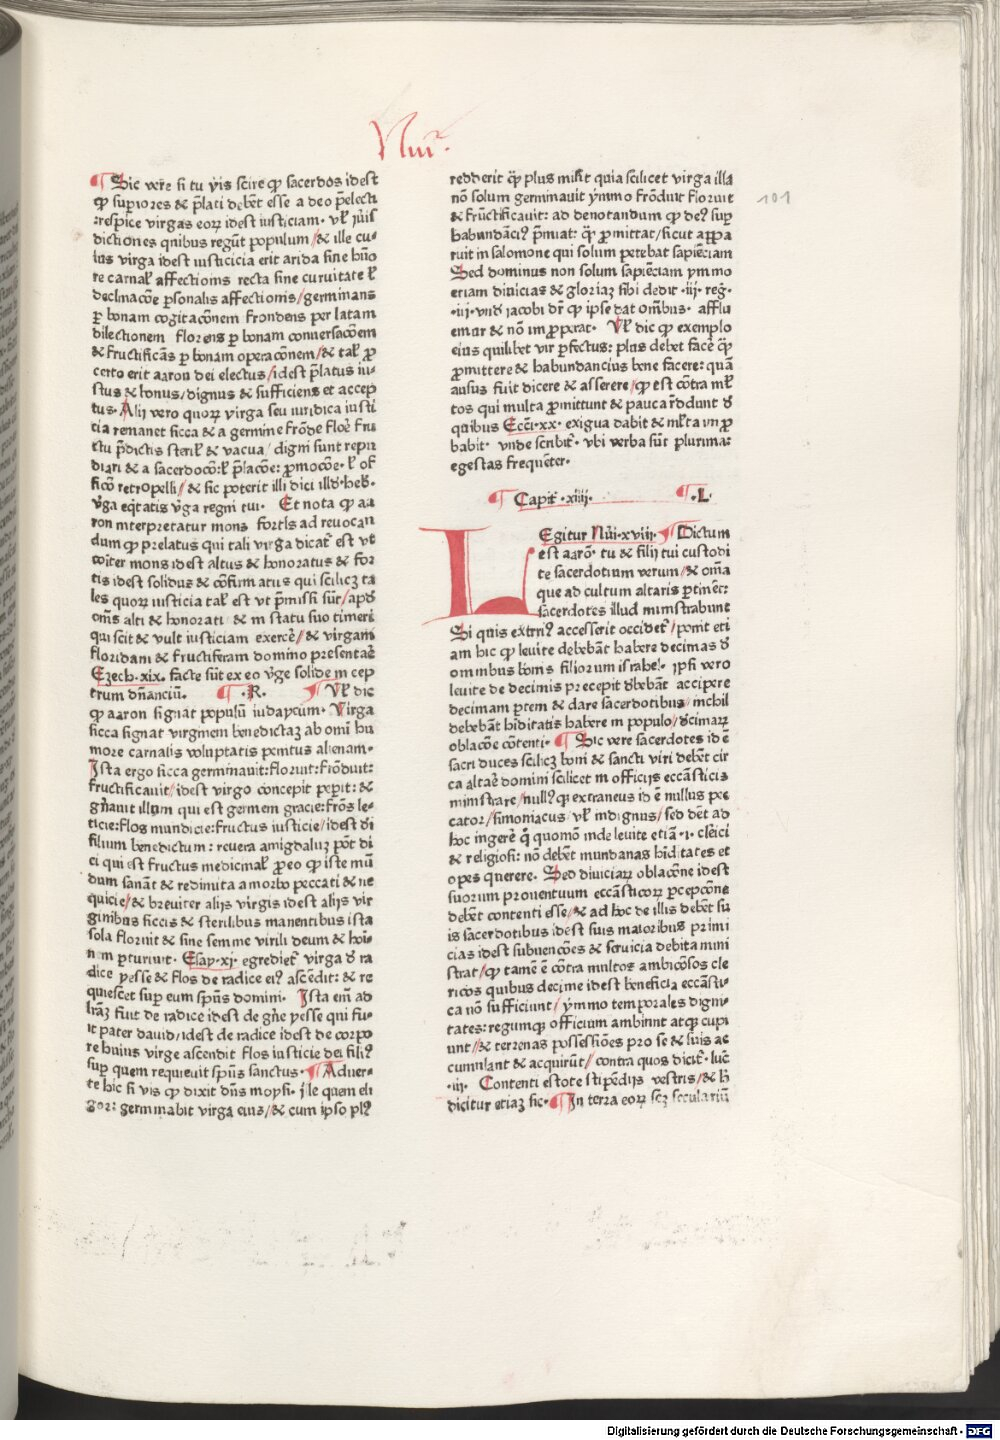 Nūi.
101
¶ Sic vere si tu vis scire qꝫ sacerdos idest
qꝫ supiores & p̄lati debēt esse a deo p̄electi
:respice virgas eoꝝ idest iusticiam. vł iuis
dictiones quibus regūt populum/& ille cu-
ius virga idest iusticicia erit arida sine hūo
re carnał affectionis recta sine curuitate ł
declinacōe ꝑsonalis affectionis/germinans
ꝑ bonam cogitacōnem frondens per latam
dilectionem florens ꝑ bonam conuersacōem
& fructificās ꝑ bonam operacōnem/& tał ꝓ
certo erit aaron dei electus/idest p̄latus iu-
stus & bonus/dignus & sufficiens et accep
tus. Alij vero quoꝝ virga seu iuridica iusti
tia remanet sicca & a germine frōde floē fru
ctu p̄dictis sterił & vacua/ digni sunt repu
diari & a sacerdocō:ł p̄lacōe: ꝓmocōe. ł of
ficō retropelli/& sic poterit illi dici illđ.heb.
v̄ga eq̄tatis v̄ga regni tui. Et nota qꝫ aa
ron interpretatur mons fortis ad reuocan
dum qꝫ prelatus qui tali virga dicat̄ est vt
cōiter mons idest altus & honoratus & for
tis idest solidus & cōfirmatus qui scilicꝫ ta
les quoꝝ iusticia tał est vt p̄missi sūt/apđ
om̄s alti & honorati & in statu suo timeri
qui scit & vult iusticiam exercē/& virgam
floridam & fructiferam domino presentaē
Ezech.xix. facte sūt ex eo v̄ge solide in cep
trum dn̄anciū. ¶ .R. ¶ Vł dic
qꝫ aaron signat populū iudaycum. Virga
sicca signat virginem benedictaꝫ ab omī hu
more carnalis voluptatis penitus alienam.
Ista ergo sicca germinauit:floruit:frōduit:
fructificauit/idest virgo concepit peꝑit: &
gn̄auit illum qui est germem gracie:frōs le-
ticie:flos mundicie:fructus iusticie/idest di
filium benedictum: reuera amigdaluꝫ pōt di
ci qui est fructus medicinał ꝓeo qꝫ iste mū
dum sanāt & redimita a morbo peccati & ne
quicie/& breuiter alijs virgis idest alijs vir
ginibus siccis & sterilibus manentibus ista
sola floruit & sine semine virili deum & hoī-
nem ꝑturiuit. Esay.xj. egrediet̄ virga đ ra
dice yesse & flos de radice eiꝰ ascēdit: & re
quiescet suꝑ eum spūs domini. Ista em̄ ad
lr̄aꝫ fuit de radice idest de gn̄e yesse qui fu-
it pater dauid/idest de radice idest de corpo
re huius virge ascendit flos iusticie dei filiꝰ
suꝑ quem requieuit spūs sanctus. ¶ Aduer-
te hic si vis qꝫ dixit dn̄s moysi. ille quem eli
goꝫ: germinabit virga eius/& cum ipso plꝰ
redderit q̄ꝫ plus misit quia scilicet virga illa
nō solum germinauit ymmo frōduit floruit
& fructificauit: ad denotandum qꝫ deꝰ suꝑ
habundāciꝰ p̄miat: q̄ꝫ ꝓmittat/sicut appa
ruit in salomone qui solum petebat sapiēciam
Sed dominus non solum sapiēciam ymmo
etiam diuicias & gloriaꝫ sibi dedit .iij. reg.
.iij. vnđ iacobi dr̄ qꝫ ipse dat om̄bus. afflu
enter & nō improperat. Vł dic qꝫ exemplo
eius quilibet vir ꝑfectus: plus debet facē q̄ꝫ
ꝓmittere & habundancius bene facere: quā
ausus fuit dicere & asserere/qꝫ est cōtra mł
tos qui multa ꝓmittunt & pauca r̄ddunt đ
quibus Ecci.xx. exigua dabit & mł̄ta in ꝓ
babit. vnde scribit̄. vbi verba sūt plurima:
egestas frequēter.
¶ Capit̄ .xiiij. ¶ .L.
LEgitur Nūi.xviij.¶ Dictum
est aarō. tu & filij tui custodi
te sacerdotium verum/& om̄a
que ad cultum altaris ꝑtinēt:
sacerdotes illud ministrabunt
Si quis extriꝰ accesserit occidet̄/ponit eti
am hic qꝫ leuite debebāt habere decimas đ
omnibus bonis filiorum israhel. ipsi vero
leuite de decimis precepit dđbebāt accipere
decimam ꝑtem & dare sacerdotibus/nichil
debebāt hiditatis habere in populo/đcimaꝝ
oblacōe cōtenti. ¶ Sic vere sacerdotes id ē
sacri duces scilicꝫ boni & sancti viri debēt cir
ca altaē domini scilicet in officijs ecc̄asticis
ministrare/nullꝰ qꝫ extraneus id ē nullus pec
cator/simoniacus vł indignus/sed dēt ad
hoc ingerē q̄ quomō inde leuite etiā .i. cleici
& religiosi: nō debēt mundanas hiditates et
opes querere. Sed diuiciaꝝ oblacōne idest
suorum prouentuum ecc̄asticoꝝ ꝑcepcōne
debēt contenti esse/& ad hoc de illis debēt su
is sacerdotibus idest suis maioribus primi
cias idest subuencōes & seruicia debita mini
strar̄/qꝫ tamē ē cōtra multos ambicōsos cle
ricos quibus decime idest beneficia ecc̄asti-
ca nō sufficiunt/ ymmo temporales digni-
tates:regumqꝫ officium ambiunt atqꝫ cupi
unt/& terrenas possessiōes pro se & suis ac
cumulant & acquirūt/ contra quos dicit̄. luc̄
.iij. Contenti estote stipēdijs vestris/& h̄
dicitur etiaꝫ sic.¶ In terra eoꝝ scꝫ seculariū
Digitalisierung gefördert durch die Deutsche Forschungsgemeinschaft - DFG